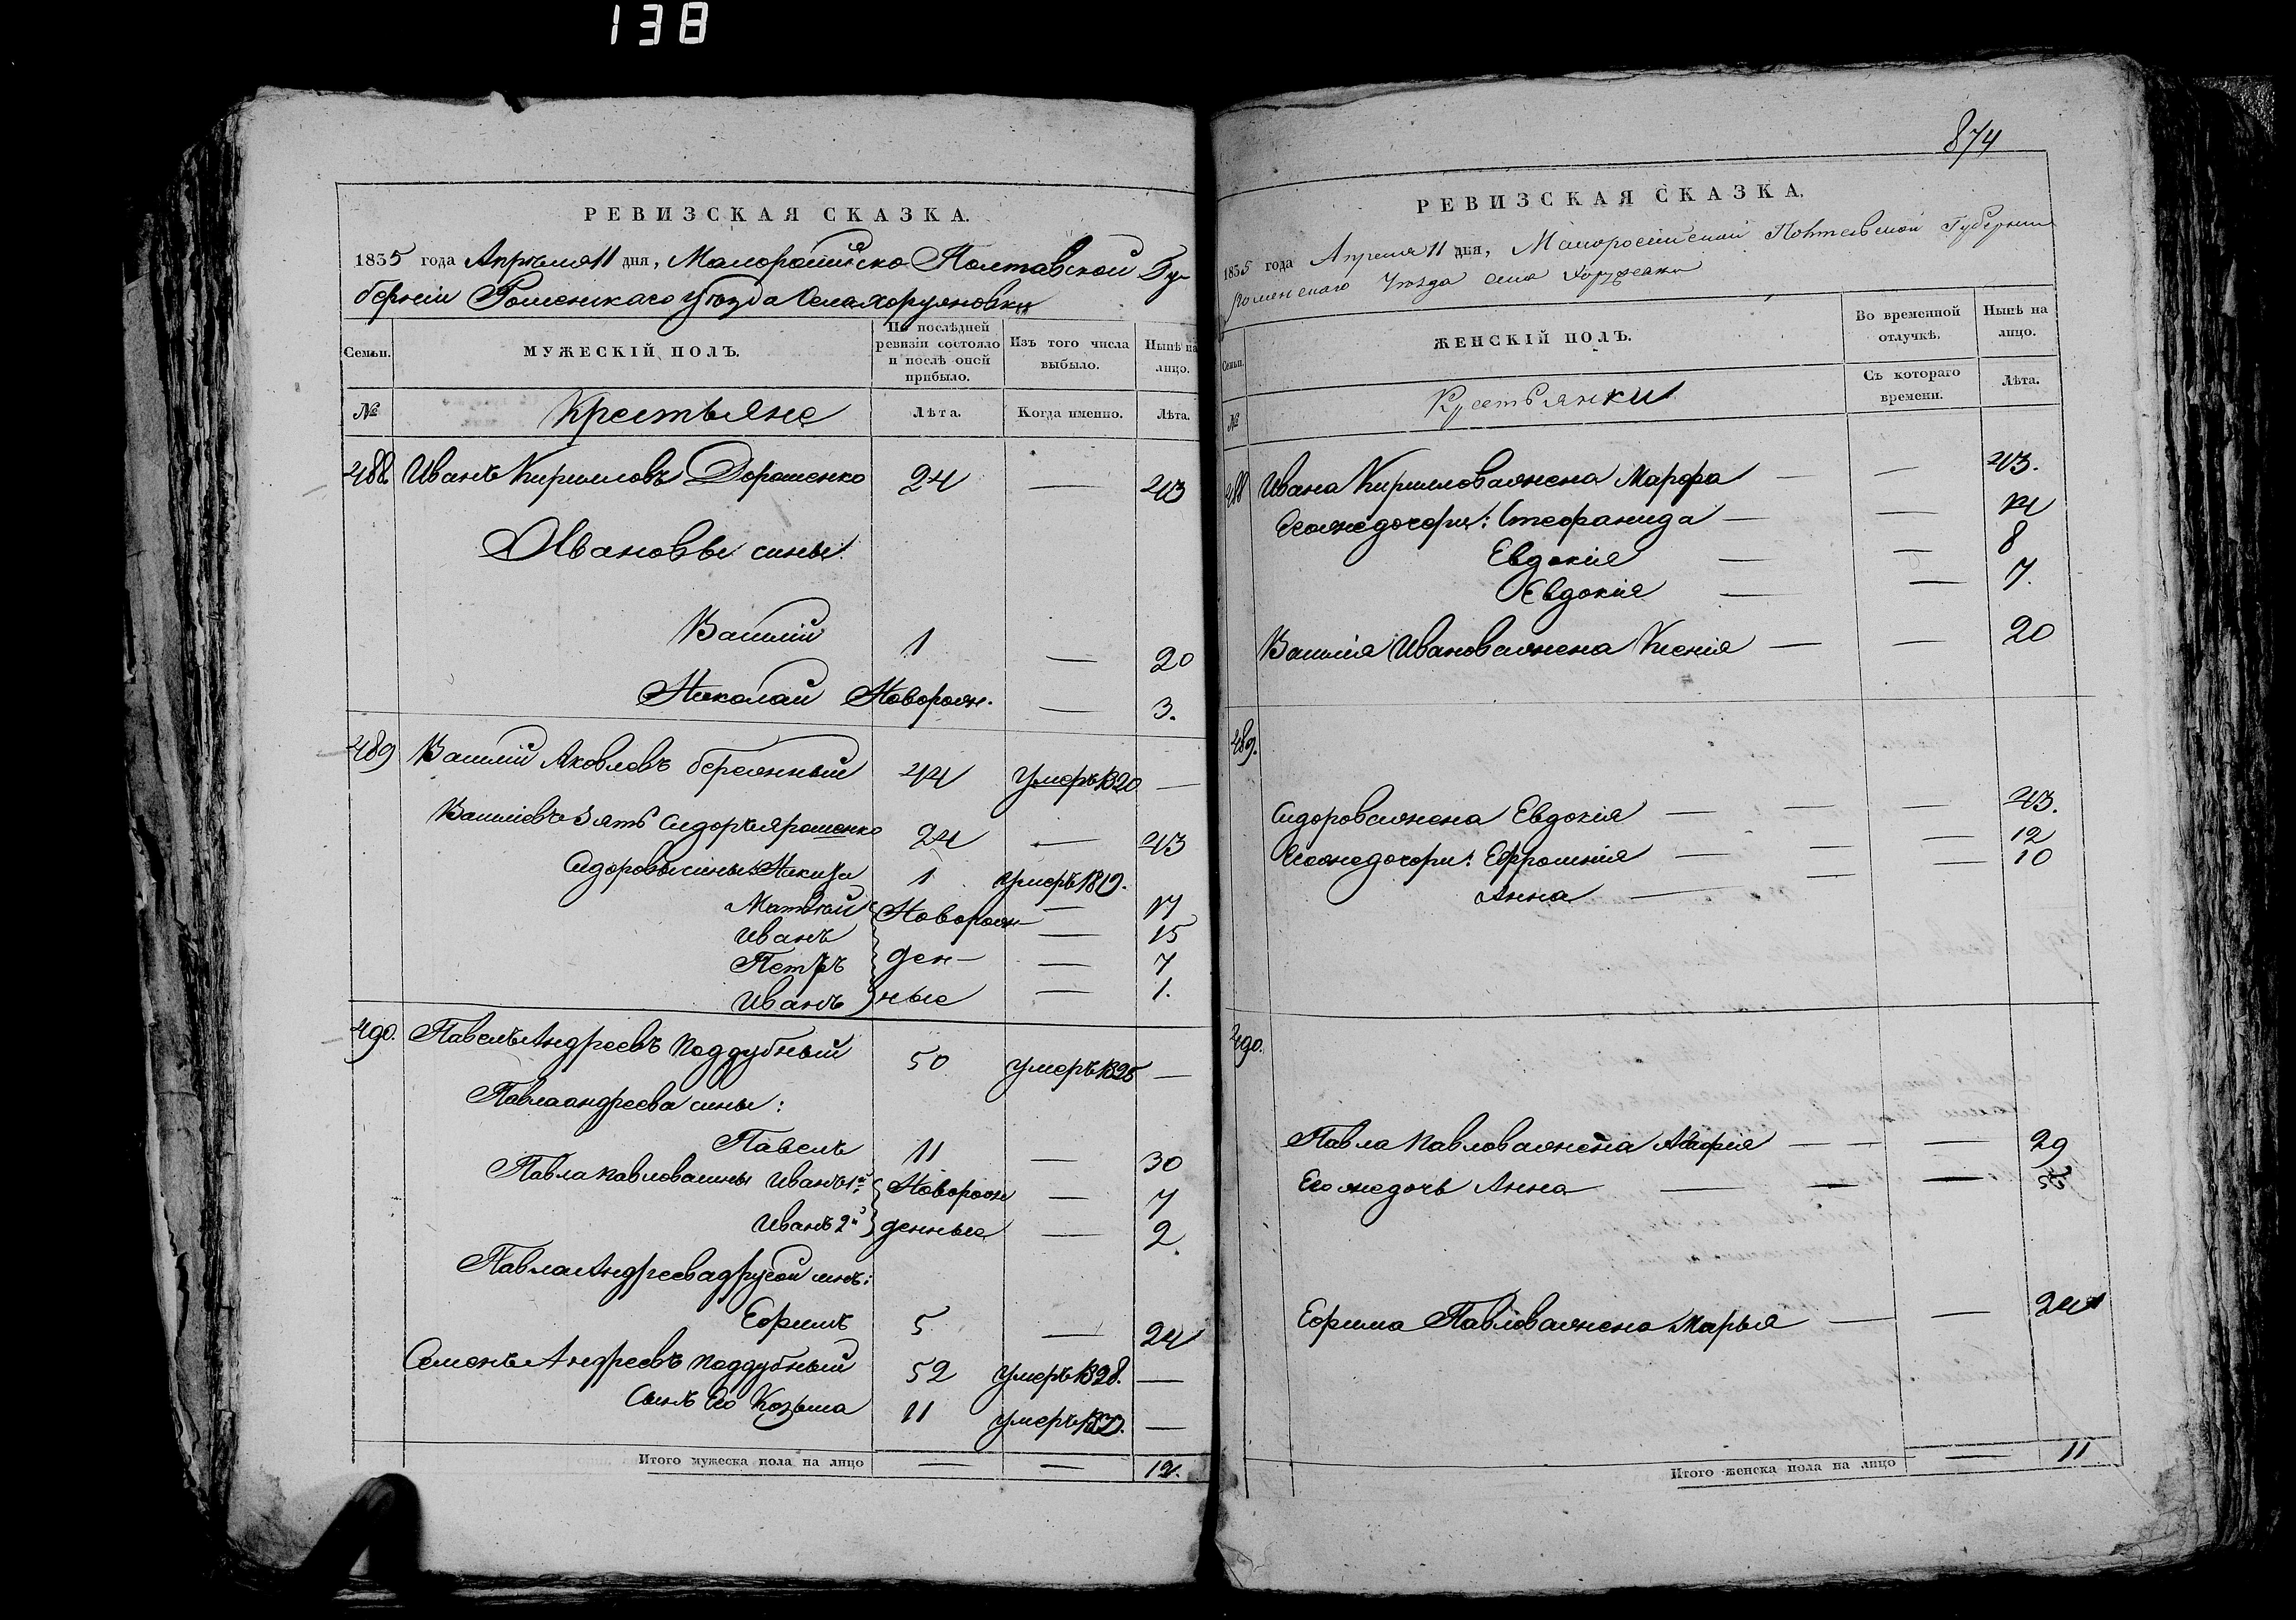 138
РЕВИЗСКАЯ СКАЗКА.
1835 года Апреля 11 дня, Малоросійско Полтавской Гу-
берніи Роменскаго Уезда Села Хоружовки
Семьи.
МУЖЕСКІЙ ПОЛЪ.
По послѣдней ревизіи состояло и послѣ оной прибыло.
Изъ того числа выбыло.
Нынѣ на лицо.
№ Крестьяне Лѣта. Когда именно. Лѣта.
488. Иванъ Кириловъ Дорошенко 24 — 43
Ивановы сины
Василій 1 — 20
Николай Новорож. — 3.
489 Василій Яковлевъ бережный 44 Умеръ 1820 —
Василіевъ зять Сидоръ ярошенко 24 — 43
Сидоровы сины: Никита 1 умеръ 1819.
Матвей Новорож — 17
Иванъ — 15
Петръ ден — 7
Иванъ ные — 1.
490. Павелъ Андреевъ Поддубный 50 умеръ 1825 —
Павла андреева сины:
Павелъ 11 — 30
Павла павлова сины Иванъ 1й Новорож — 7
Иванъ 2й денные — 2.
Павла Андреева другой синъ:
Ефимъ 5 — 24
Семенъ Андреевъ поддубный 52 умеръ 1828. —
Сынъ Его Козьма 11 умеръ —
Итого мужеска пола на лицо — — 12.
874
РЕВИЗСКАЯ СКАЗКА.
1835 года Апреля 11 дня, Малоросійской Полтавской Губерніи
Роменскаго Уезда села
Семьи.
ЖЕНСКІЙ ПОЛЪ.
Во временной отлучкѣ.
Нынѣ на лицо.
№ Крестьянки Съ котораго времени. Лѣта.
488 Ивана Кирилова жена Марфа — — 43.
Его же дочери: Стефанида — — 14
Евдокія — — 8
Евдокія — — 7.
Василія Иванова жена Ксенія — — 20
489.
Сидорова жена Евдокія — — — 43.
Его же дочери: Ефросинія — — — 12
Анна — — — 10
490.
Павла Павлова жена Агафія — — — 29
Его же дочь Анна — — —
Ефима Павлова жена Марья — — 24
Итого женска пола на лицо — 11